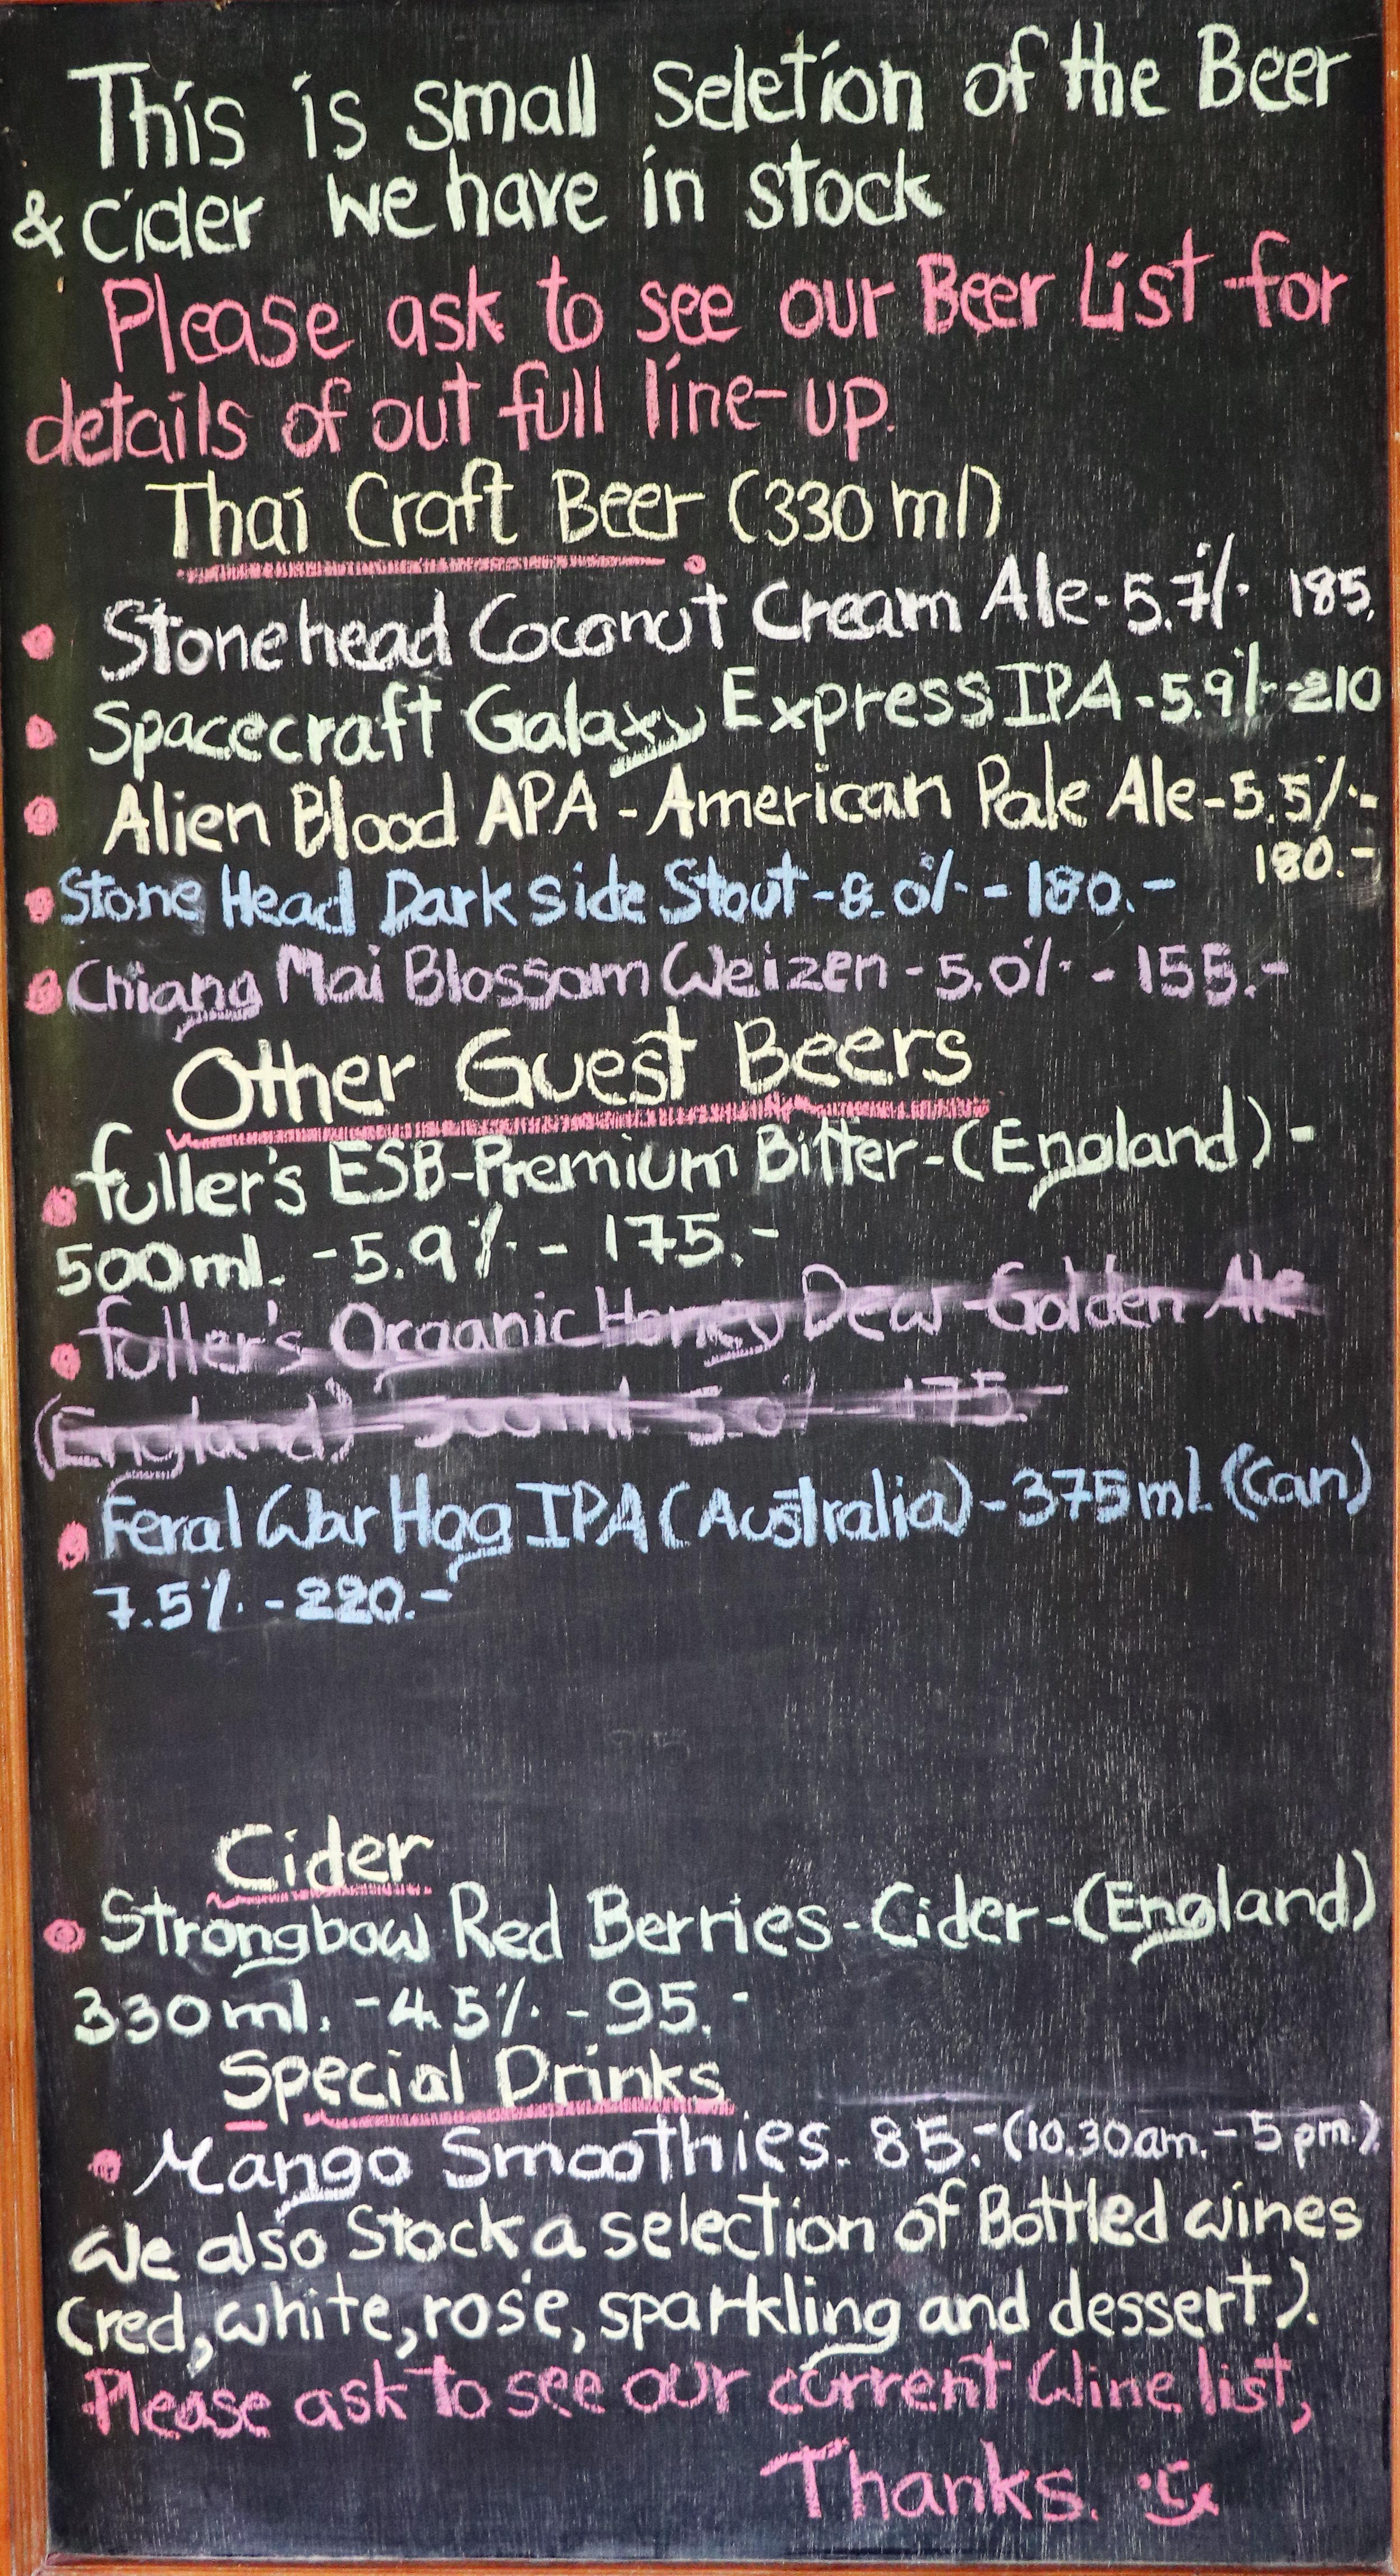 This is small seletion of the Beer
& cider we have in stock
Please ask to see our Beer List for
details of out full line-up.
Thai Craft Beer (330 ml)
Stonehead Coconut Cream Ale-5.7% 185.
Spacecraft Galaxy Express IPA-5.9%-210
Alien Blood APA - American Pale Ale-5.5%-
180.-
Stone Head Dark side Stout-8.0% - 180.-
Chiang Mai Blossom Weizen - 5.0% - 155.-
Other Guest Beers
fuller's ESB-Premium Bitter-(England)-
500ml. -5.9% - 175.-
fuller's Organic Honey Dew Golden Ale
(England) - 500ml - 5.0% - 175.-
Feral War Hog IPA (Australia)-375ml. (Can)
7.5% -220.-
Cider
Strongbow Red Berries-Cider-(England)
330ml. -4.5% -95.-
Special Drinks
Mango Smoothies. 85.-(10.30am.-5pm.)
We also Stock a selection of Bottled wines
(red, white, rosé, sparkling and dessert).
Please ask to see our current Wine list,
Thanks.